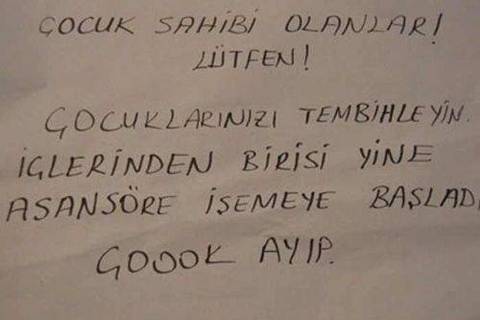 ÇOCUK SAHİBİ OLANLAR!
LÜTFEN!
ÇOCUKLARINIZI TEMBİHLEYİN.
İÇLERİNDEN BİRİSİ YİNE
ASANSÖRE İŞEMEYE BAŞLADI
ÇOOOK AYIP.